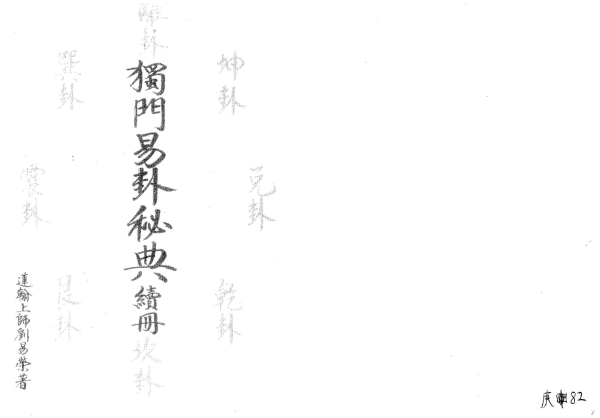 離卦
坤卦
巽卦
獨門易卦秘典續冊
兌卦
震卦
乾卦
艮卦
坎卦
蓮翰上師劉易榮著
82